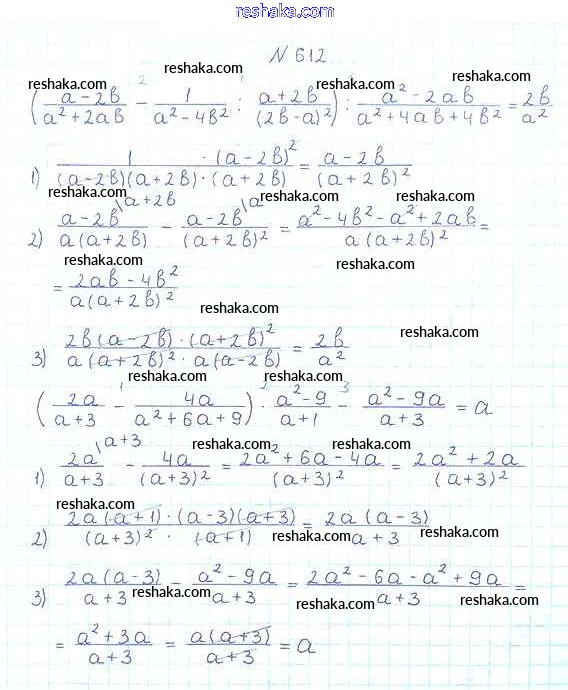 reshaka.com
N 612
reshaka.com
reshaka.com reshaka.com reshaka.com
((a-2b)/(a²+2ab) - 1/(a²-4b²) : (a+2b)/(2b-a)²) : (a²-2ab)/(a²+4ab+4b²) = 2b/a²
reshaka.com reshaka.com reshaka.com
1) (1 · (a-2b)²)/((a-2b)(a+2b) · (a+2b)) = (a-2b)/(a+2b)²
reshaka.com reshaka.com reshaka.com
2) (a-2b)/(a(a+2b)) \a+2b - (a-2b)/(a+2b)² \a = (a²-4b²-a²+2ab)/(a(a+2b)²) =
reshaka.com reshaka.com
= (2ab-4b²)/(a(a+2b)²)
reshaka.com
3) (2b(a-2b) · (a+2b)²)/(a(a+2b)² · a(a-2b)) = 2b/a²
reshaka.com
reshaka.com reshaka.com
(2a/(a+3) - 4a/(a²+6a+9)) · (a²-9)/(a+1) - (a²-9a)/(a+3) = a
reshaka.com reshaka.com
1) 2a/(a+3) \a+3 - 4a/(a+3)² = (2a²+6a-4a)/(a+3)² = (2a²+2a)/(a+3)²
reshaka.com reshaka.com
2) (2a(a+1) · (a-3)(a+3))/((a+3)² · (a+1)) = (2a(a-3))/(a+3)
reshaka.com reshaka.com
3) (2a(a-3))/(a+3) - (a²-9a)/(a+3) = (2a²-6a-a²+9a)/(a+3) =
reshaka.com reshaka.com reshaka.com
= (a²+3a)/(a+3) = (a(a+3))/(a+3) = a
reshaka.com